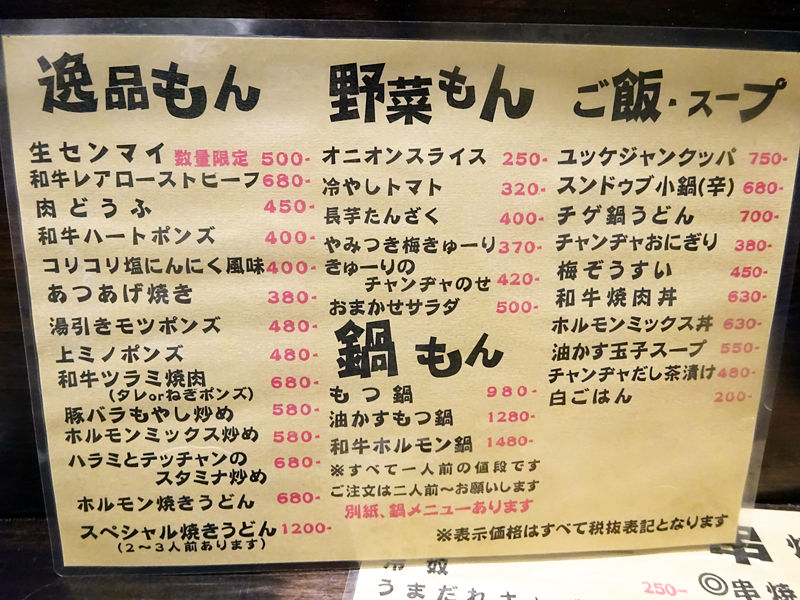 逸品もん
生センマイ 数量限定 500-
和牛レアローストビーフ 680-
肉どうふ 450-
和牛ハートポンズ 400-
コリコリ塩にんにく風味 400-
あつあげ焼き 380-
湯引きモツポンズ 480-
上ミノポンズ 480-
和牛ツラミ焼肉 680-
(タレorねぎポンズ)
豚バラもやし炒め 580-
ホルモンミックス炒め 580-
ハラミとテッチャンの 680-
スタミナ炒め
ホルモン焼きうどん 680-
スペシャル焼きうどん 1200-
(2〜3人前あります)
野菜もん
オニオンスライス 250-
冷やしトマト 320-
長芋たんざく 400-
やみつき梅きゅーり 370-
きゅーりの
チャンヂャのせ 420-
おまかせサラダ 500-
鍋もん
もつ鍋 980-
油かすもつ鍋 1280-
和牛ホルモン鍋 1480-
※すべて一人前の値段です
ご注文は二人前〜お願いします
別紙、鍋メニューあります
ご飯・スープ
ユッケジャンクッパ 750-
スンドゥブ小鍋(辛) 680-
チゲ鍋うどん 700-
チャンヂャおにぎり 380-
梅ぞうすい 450-
和牛焼肉丼 630-
ホルモンミックス丼 630-
油かす玉子スープ 550-
チャンヂャだし茶漬け 480-
白ごはん 200-
※表示価格はすべて税抜表記となります
冷奴
うまだれキャ 250-
串焼
◎串焼